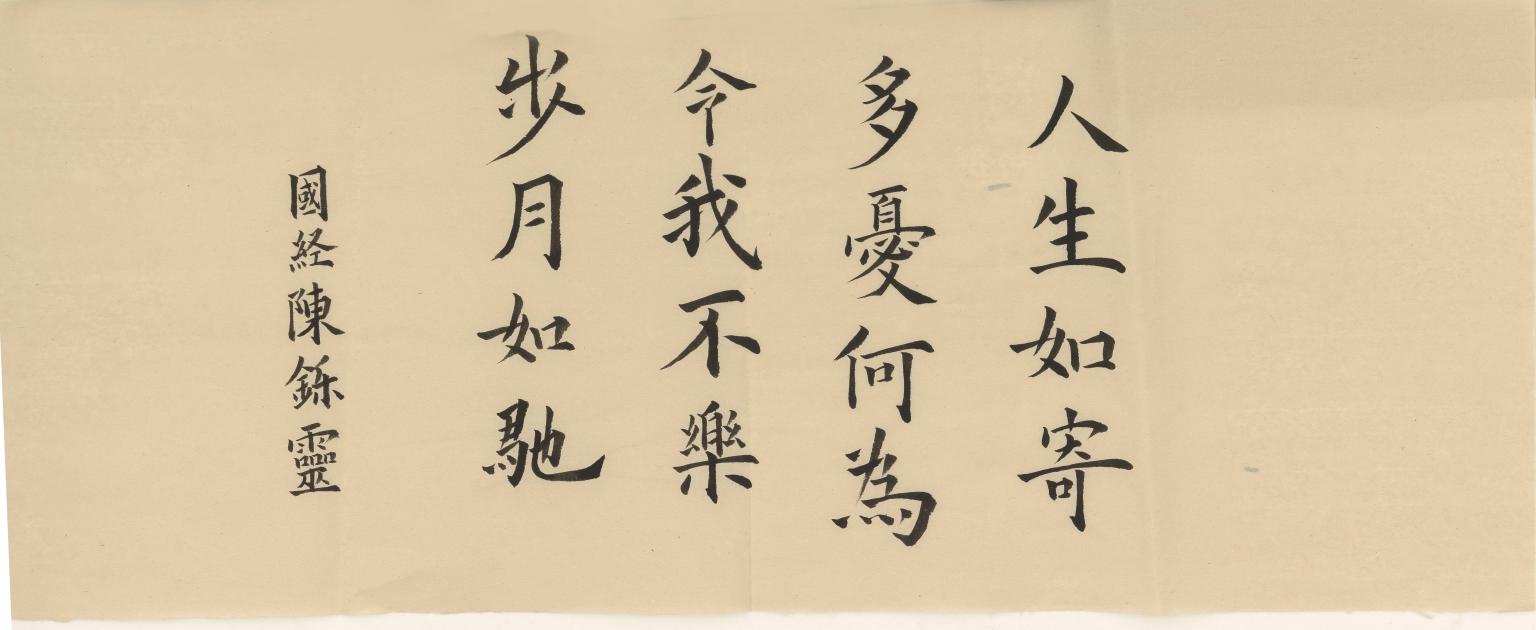 人生如寄
多憂何為
今我不樂
歩月如馳
國経陳鑠靈